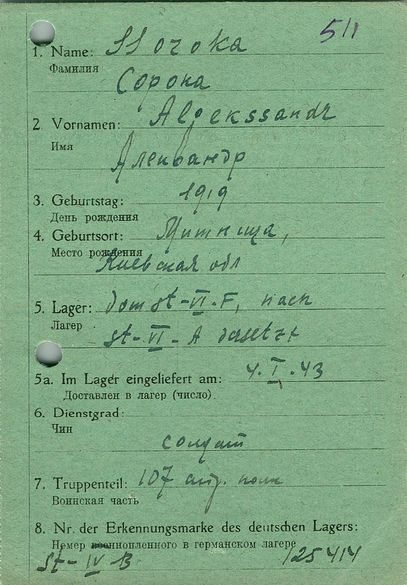 511
1. Name: SSoroka
Фамилия
Сорока
2. Vornamen: Alekssandr
Имя
Александр
3. Geburtstag: 1919
День рождения
4. Geburtsort: Митница,
Место рождения
Киевская обл
5. Lager: st-VI-F, nach
Лагер
st-VI-A
5a. Im Lager eingeliefert am: 4.I.43
Доставлен в лагер (число)
6. Dienstgrad:
Чин
солдат
7. Truppenteil: 107 полк
Воинская часть
8. Nr. der Erkennungsmarke des deutschen Lagers:
Немер военнопленного в германском лагере
St-IV-B 125414